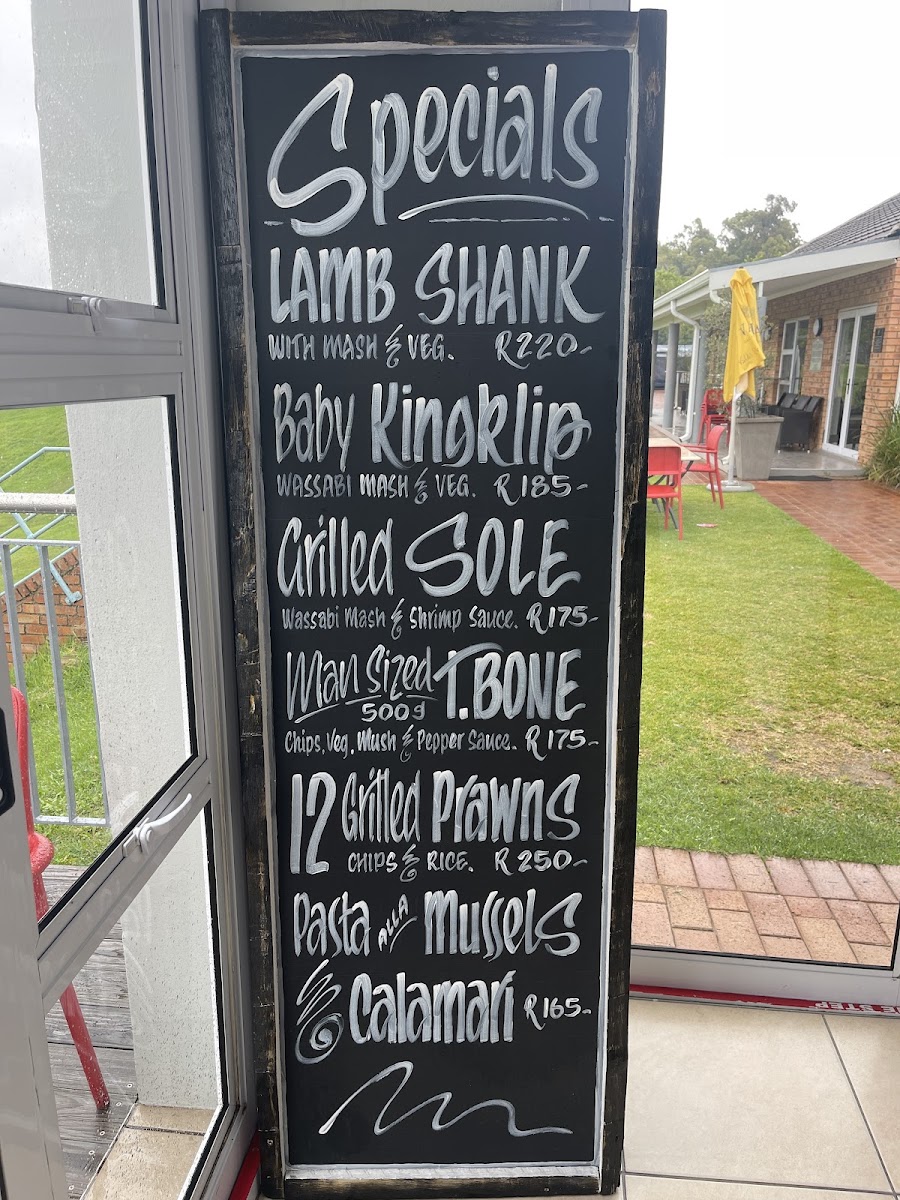 Specials
LAMB SHANK
WITH MASH & VEG. R220-
Baby Kingklip
WASSABI MASH & VEG. R185-
Grilled SOLE
Wassabi Mash & Shrimp Sauce. R175-
Man Sized T.BONE
500g
Chips, Veg, Mush & Pepper Sauce. R175-
12 Grilled Prawns
CHIPS & RICE. R250-
Pasta ALLA Mussels
& Calamari R165-
STEP